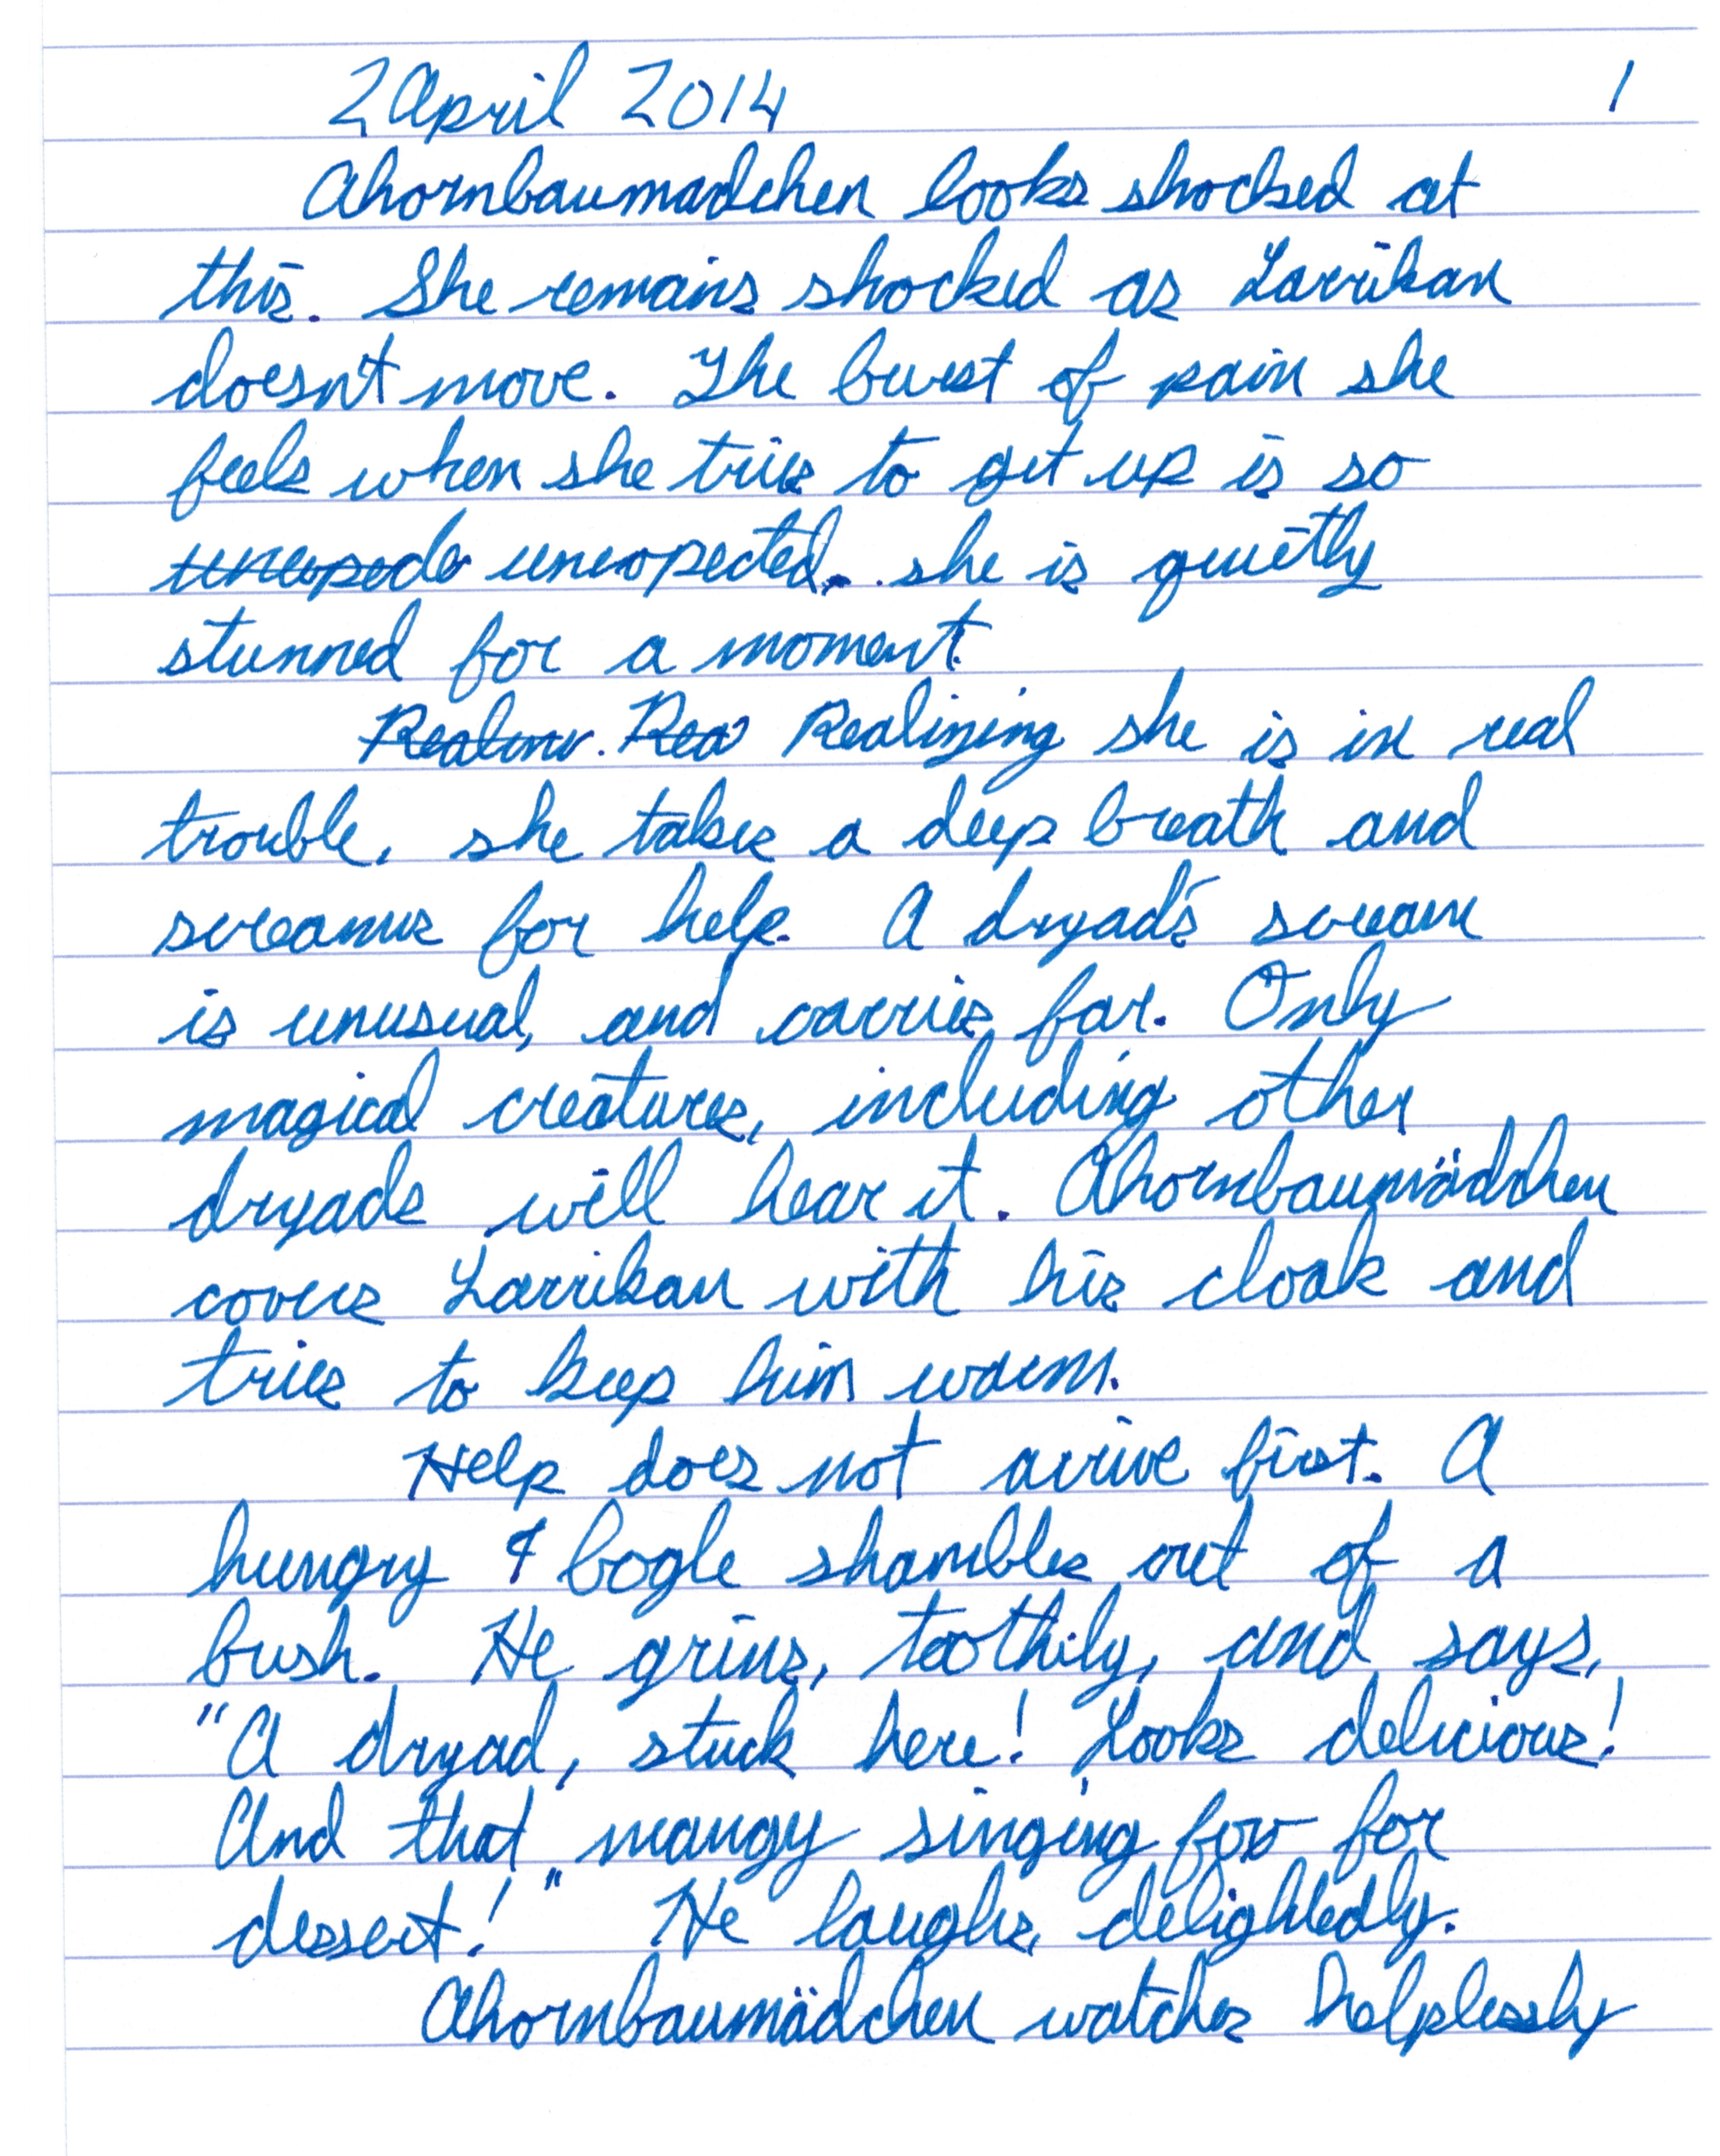 2 April 2014 1
Ahornbaumadchen looks shocked at
this. She remains shocked as Larrikan
doesn't move. The burst of pain she
feels when she tries to get up is so
unexpected, she is quietly
stunned for a moment.
Rea Realizing she is in real
trouble, she takes a deep breath and
screams for help. A dryad's scream
is unusual, and carries far. Only
magical creatures, including other
dryads will hear it. Ahornbaumädchen
covers Larrikan with his cloak and
tries to keep him warm.
Help does not arrive first. A
hungry bogle shambles out of a
bush. He grins, toothily, and says,
"A dryad, stuck here! Looks delicious!
And that mangy singing fox for
dessert!" He laughs, delightedly.
Ahornbaumädchen watches helplessly